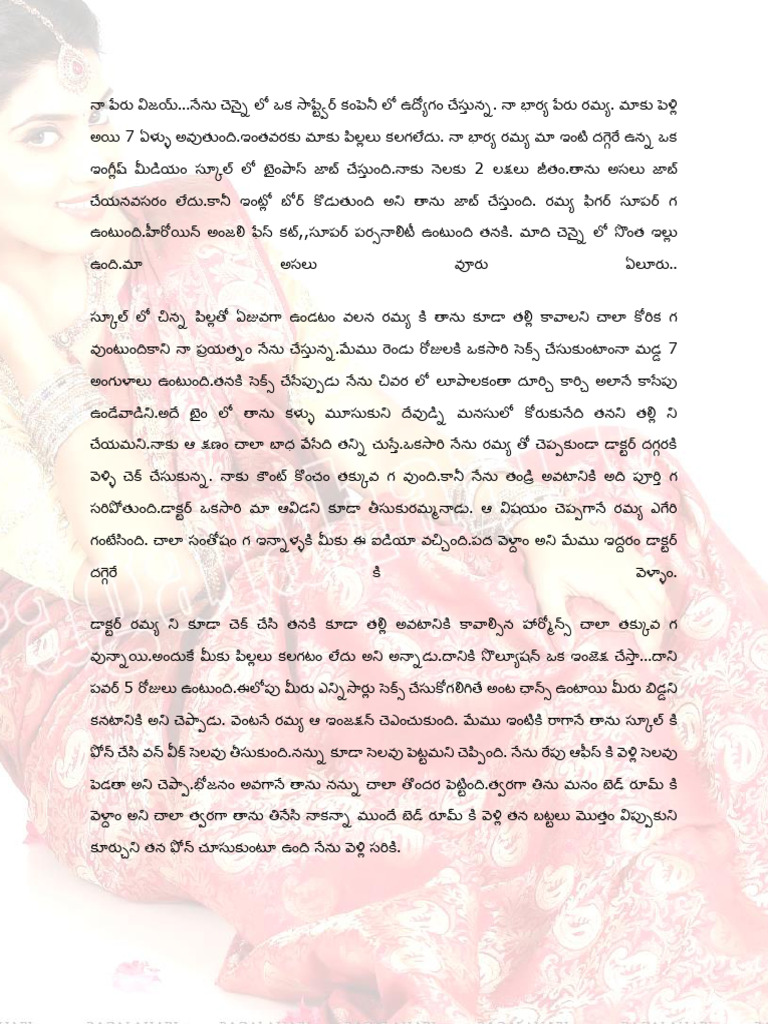 నా పేరు విజయ్...నేను చెన్నై లో ఒక సాఫ్ట్వేర్ కంపెనీ లో ఉద్యోగం చేస్తున్న. నా భార్య పేరు రమ్య. మాకు పెళ్లి
అయి 7 ఏళ్ళు అవుతుంది.ఇంతవరకు మాకు పిల్లలు కలగలేదు. నా భార్య రమ్య మా ఇంటి దగ్గెరే ఉన్న ఒక
ఇంగ్లీష్ మీడియం స్కూల్ లో టైంపాస్ జాబ్ చేస్తుంది.నాకు నెలకు 2 లక్షలు జీతం.తాను అసలు జాబ్
చేయనవసరం లేదు.కానీ ఇంట్లో బోర్ కొడుతుంది అని తాను జాబ్ చేస్తుంది. రమ్య ఫిగర్ సూపర్ గ
ఉంటుంది.హీరోయిన్ అంజలి ఫేస్ కట్,,సూపర్ పర్సనాలిటీ ఉంటుంది తనకి. మాది చెన్నై లో సొంత ఇల్లు
ఉంది.మా అసలు వూరు ఏలూరు..
స్కూల్ లో చిన్న పిల్లతో ఏజువగా ఉండటం వలన రమ్య కి తాను కూడా తల్లి కావాలని చాలా కోరిక గ
వుంటుందికాని నా ప్రయత్నం నేను చేస్తున్న.మేము రెండు రోజులకి ఒకసారి సెక్స్ చేసుకుంటాంనా మడ్డ 7
అంగుళాలు ఉంటుంది.తనకి సెక్స్ చేసేప్పుడు నేను చివర లో లూపాలకంతా దూర్చి కార్చి అలానే కాసేపు
ఉండేవాడిని.అదే టైం లో తాను కళ్ళు మూసుకుని దేవుడ్ని మనసులో కోరుకునేది తనని తల్లి ని
చేయమని.నాకు ఆ క్షణం చాలా బాధ వేసేది తన్ని చుస్తే.ఒకసారి నేను రమ్య తో చెప్పకుండా డాక్టర్ దగ్గరకి
వెళ్ళి చెక్ చేసుకున్న. నాకు కౌంట్ కొంచం తక్కువ గ వుంది.కానీ నేను తండ్రి అవటానికి అది పూర్తి గ
సరిపోతుంది.డాక్టర్ ఒకసారి మా ఆవిడని కూడా తీసుకురమ్మనాడు. ఆ విషయం చెప్పగానే రమ్య ఎగేరి
గంటేసింది. చాలా సంతోషం గ ఇన్నాళ్ళకి మీకు ఈ ఐడియా వచ్చింది.పద వెళ్దాం అని మేము ఇద్దరం డాక్టర్
దగ్గెరే కి వెళ్ళాం.
డాక్టర్ రమ్య ని కూడా చెక్ చేసి తనకి కూడా తల్లి అవటానికి కావాల్సిన హార్మోన్స్ చాలా తక్కువ గ
వున్నాయి.అందుకే మీకు పిల్లలు కలగటం లేదు అని అన్నాడు.దానికి సొల్యూషన్ ఒక ఇంజెక్ష చేస్తా...దాని
పవర్ 5 రోజులు ఉంటుంది.ఈలోపు మీరు ఎన్నిసార్లు సెక్స్ చేసుకోగలిగితే అంట చాన్స్ ఉంటాయి మీరు బిడ్డని
కనటానికి అని చెప్పాడు. వెంటనే రమ్య ఆ ఇంజక్షన్ చెఎంచుకుంది. మేము ఇంటికి రాగానే తాను స్కూల్ కి
ఫోన్ చేసి వన్ వీక్ సెలవు తీసుకుంది.నన్ను కూడా సెలవు పెట్టమని చెప్పింది. నేను రేపు ఆఫీస్ కి వెళ్లి సెలవు
పెడతా అని చెప్పా.భోజనం అవగానే తాను నన్ను చాలా తొందర పెట్టింది.త్వరగా తిను మనం బెడ్ రూమ్ కి
వెళ్దాం అని చాలా త్వరగా తాను తినేసి నాకన్నా ముందే బెడ్ రూమ్ కి వెళ్లి తన బట్టలు మొత్తం విప్పుకుని
కూర్చుని తన ఫోన్ చూసుకుంటూ ఉంది నేను వెళ్లే సరికి.